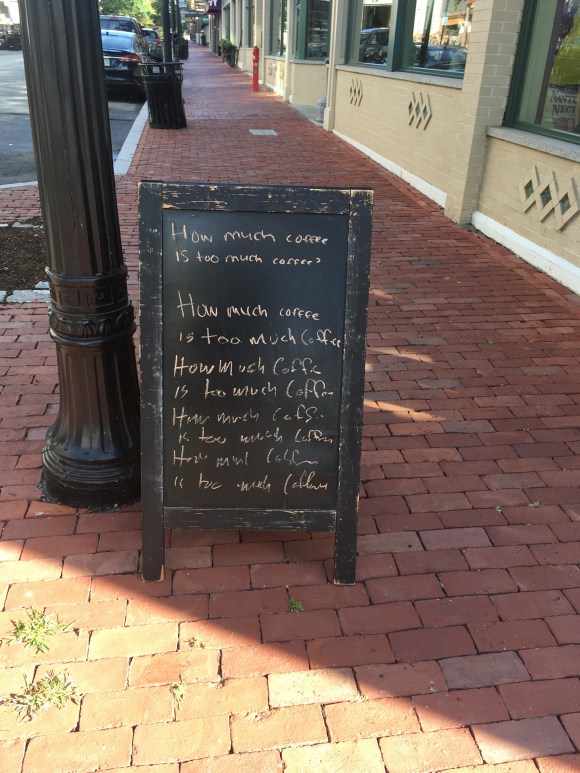 How much coffee
is too much coffee?
How much coffee
is too much Coffee
How Much Coffe
is too much Coffee
How much Coffe
is too much Coffee
How
is too much Coffee